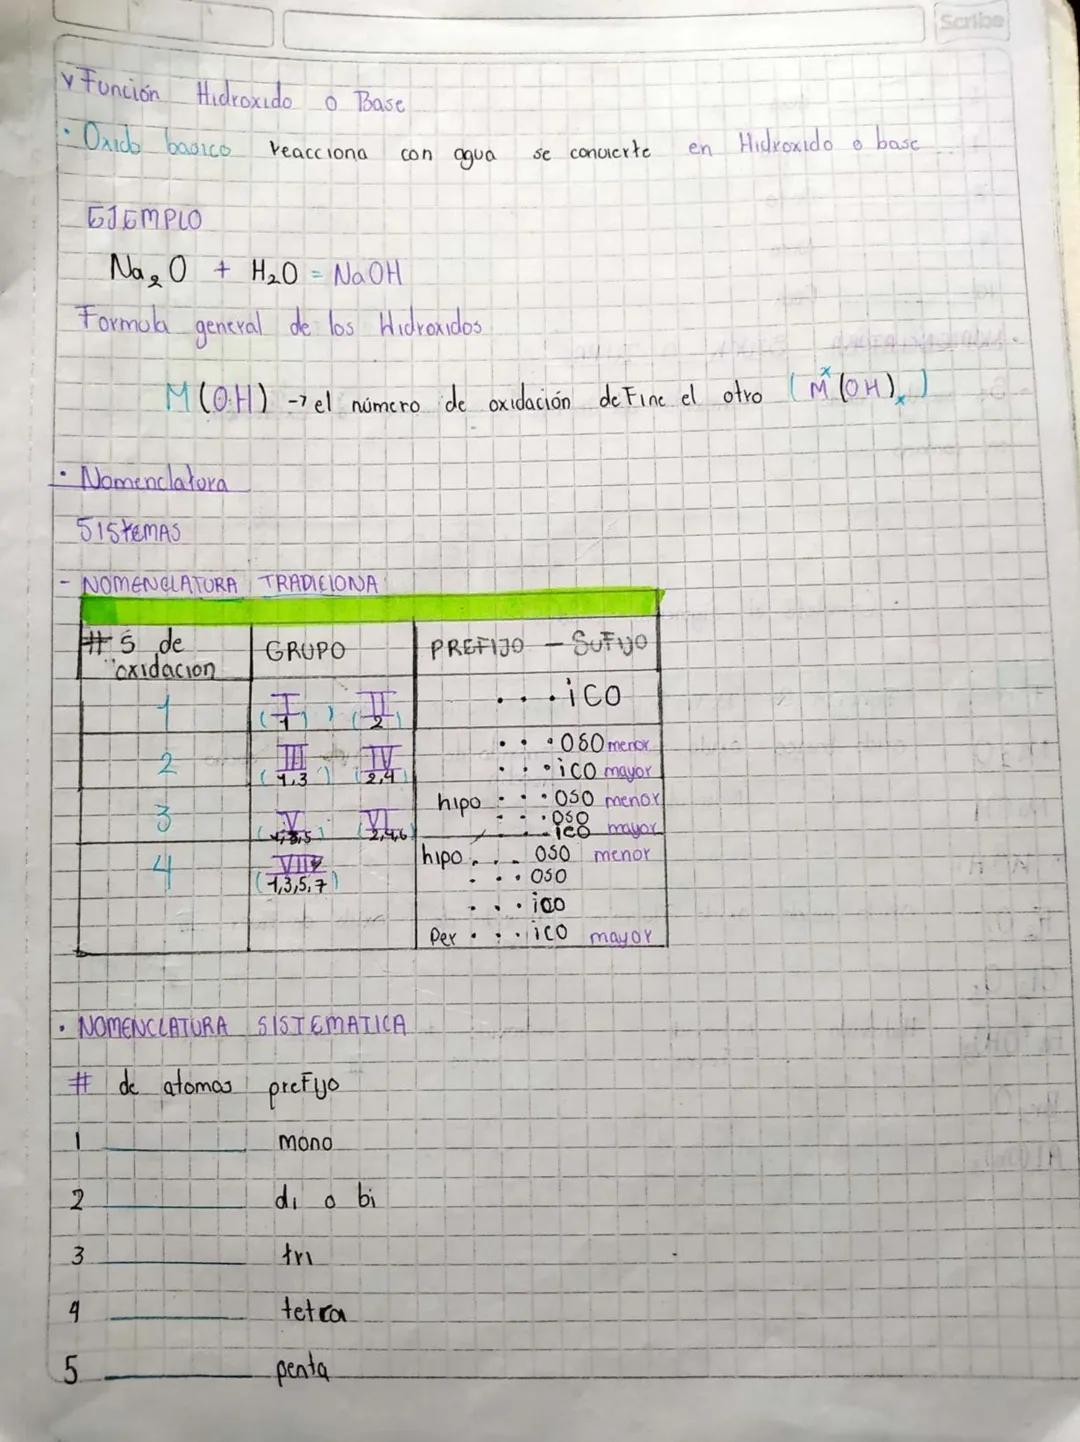 Scribe
√ Función Hidroxido o Base
· Oxido basico reacciona con agua se convierte en Hidroxido o base
EJEMPLO
Na2O + H2O = NaOH
Formula general de los Hidroxidos
M(OH) → el número de oxidación define el otro (Mˣ(OH)ₓ)
· Nomenclatura
SistemAS
- NOMENCLATURA TRADICIONA
#s de oxidacion GRUPO PREFIJO - SUFIJO
1 I (1), II (2) ...ico
2 III (1,3) IV (2,4) ...oso menor
...ico mayor
3 V (1,3,5) VI (2,4,6) hipo ...oso menor
...oso
...ico mayor
4 VII (1,3,5,7) hipo... oso menor
...oso
...ico
Per ...ico mayor
· NOMENCLATURA SISTEMATICA
# de atomos prefijo
1 mono
2 di o bi
3 tri
4 tetra
5 penta